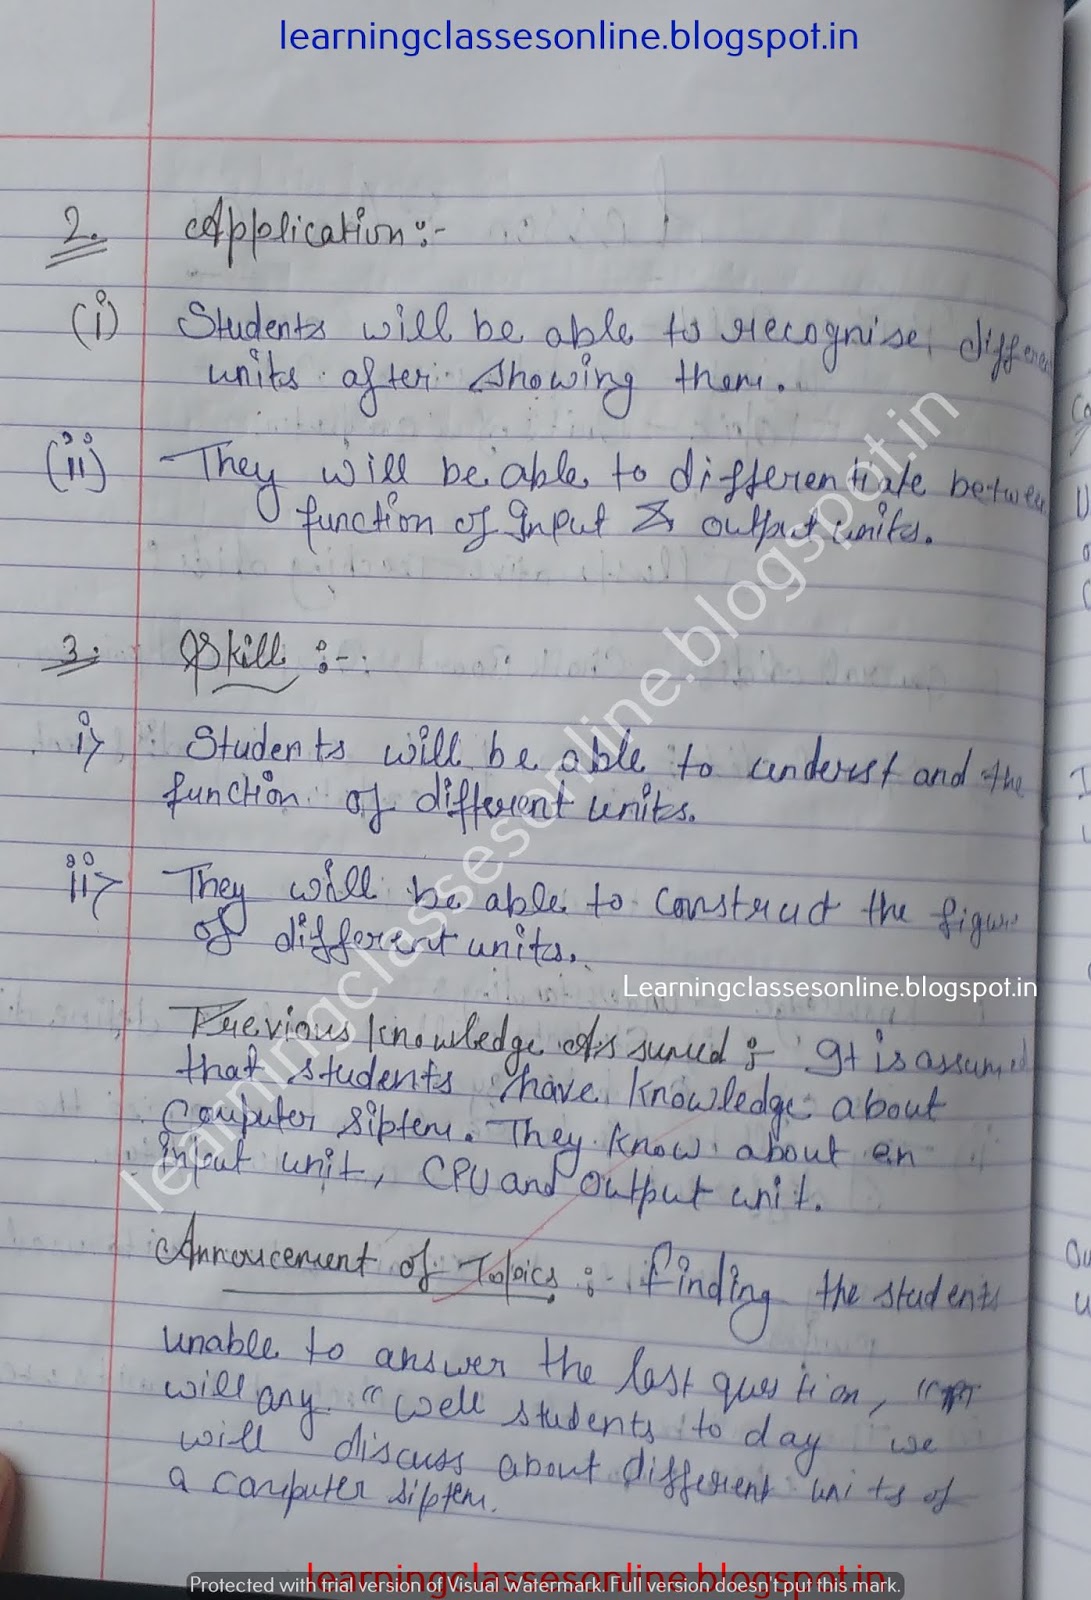 learningclassesonline.blogspot.in
2. Application:-
(i) Students will be able to recognise different
units after showing them.
(ii) They will be able to differentiate between
function of Input & output units.
3. Skill :-
i> Students will be able to underst and the
function of different units.
ii> They will be able to construct the figure
of different units.
Learningclassesonline.blogspot.in
Previous knowledge Assumed :- It is assumed
that students have knowledge about
Computer siptem. They know about an
input unit, CPU and output unit.
Annoucement of Topics :- Finding the students
unable to answer the last question,
will any "Well students to day we
will discuss about different units of
a computer siptem.
learningclassesonline.blogspot.in
learningclassesonline.blogspot.in
Protected with trial version of Visual Watermark. Full version doesn't put this mark.